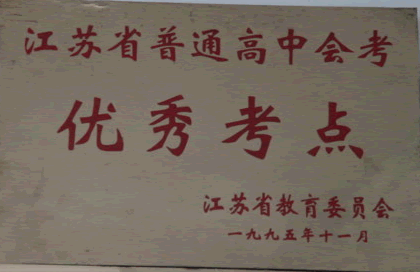 江苏省普通高中会考
优秀考点
江苏省教育委员会
一九九五年十一月